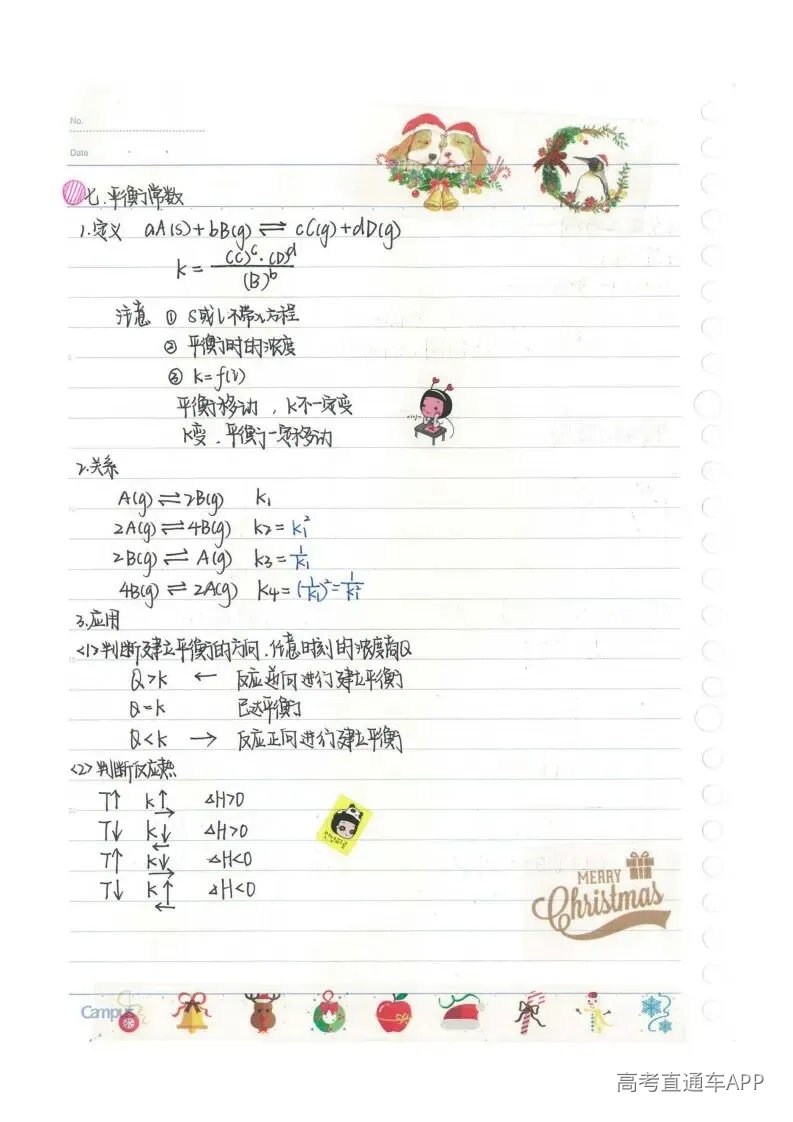 No.
Date
七.平衡常数
1.定义 aA(s)+bB(g) ⇌ cC(g)+dD(g)
K = (C)^c·(D)^d / (B)^b
注意 ① s或l不带入方程
② 平衡时的浓度
③ K=f(T)
平衡移动，K不一定变
K变，平衡一定移动
2.关系
A(g)⇌2B(g) K₁
2A(g)⇌4B(g) K₂=K₁²
2B(g)⇌A(g) K₃=1/K₁
4B(g)⇌2A(g) K₄=(1/K₁)²=1/K₁²
3.应用
<1>判断建立平衡的方向.任意时刻的浓度商Q
Q>K ← 反应逆向进行建立平衡
Q=K 已达平衡
Q<K → 反应正向进行建立平衡
<2>判断反应热
T↑ K↑ → ΔH>0
T↓ K↓ ← ΔH>0
T↑ K↓ → ΔH<0
T↓ K↑ ← ΔH<0
MERRY
Christmas
Campus
高考直通车APP